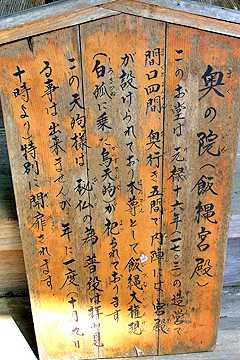 奥の院(飯縄宮殿)
このお堂は元禄十六年(一七〇三)の造営で
間口四間 奥行き五間で内陣には宮殿
が設けられており本尊として飯縄大権現
(白狐に乗った烏天狗)が祀られております
この天狗様は秘仏の為普段は拝見す
る事は出来ませんが年に一度(十月九日
十時より)特別に開扉されます。